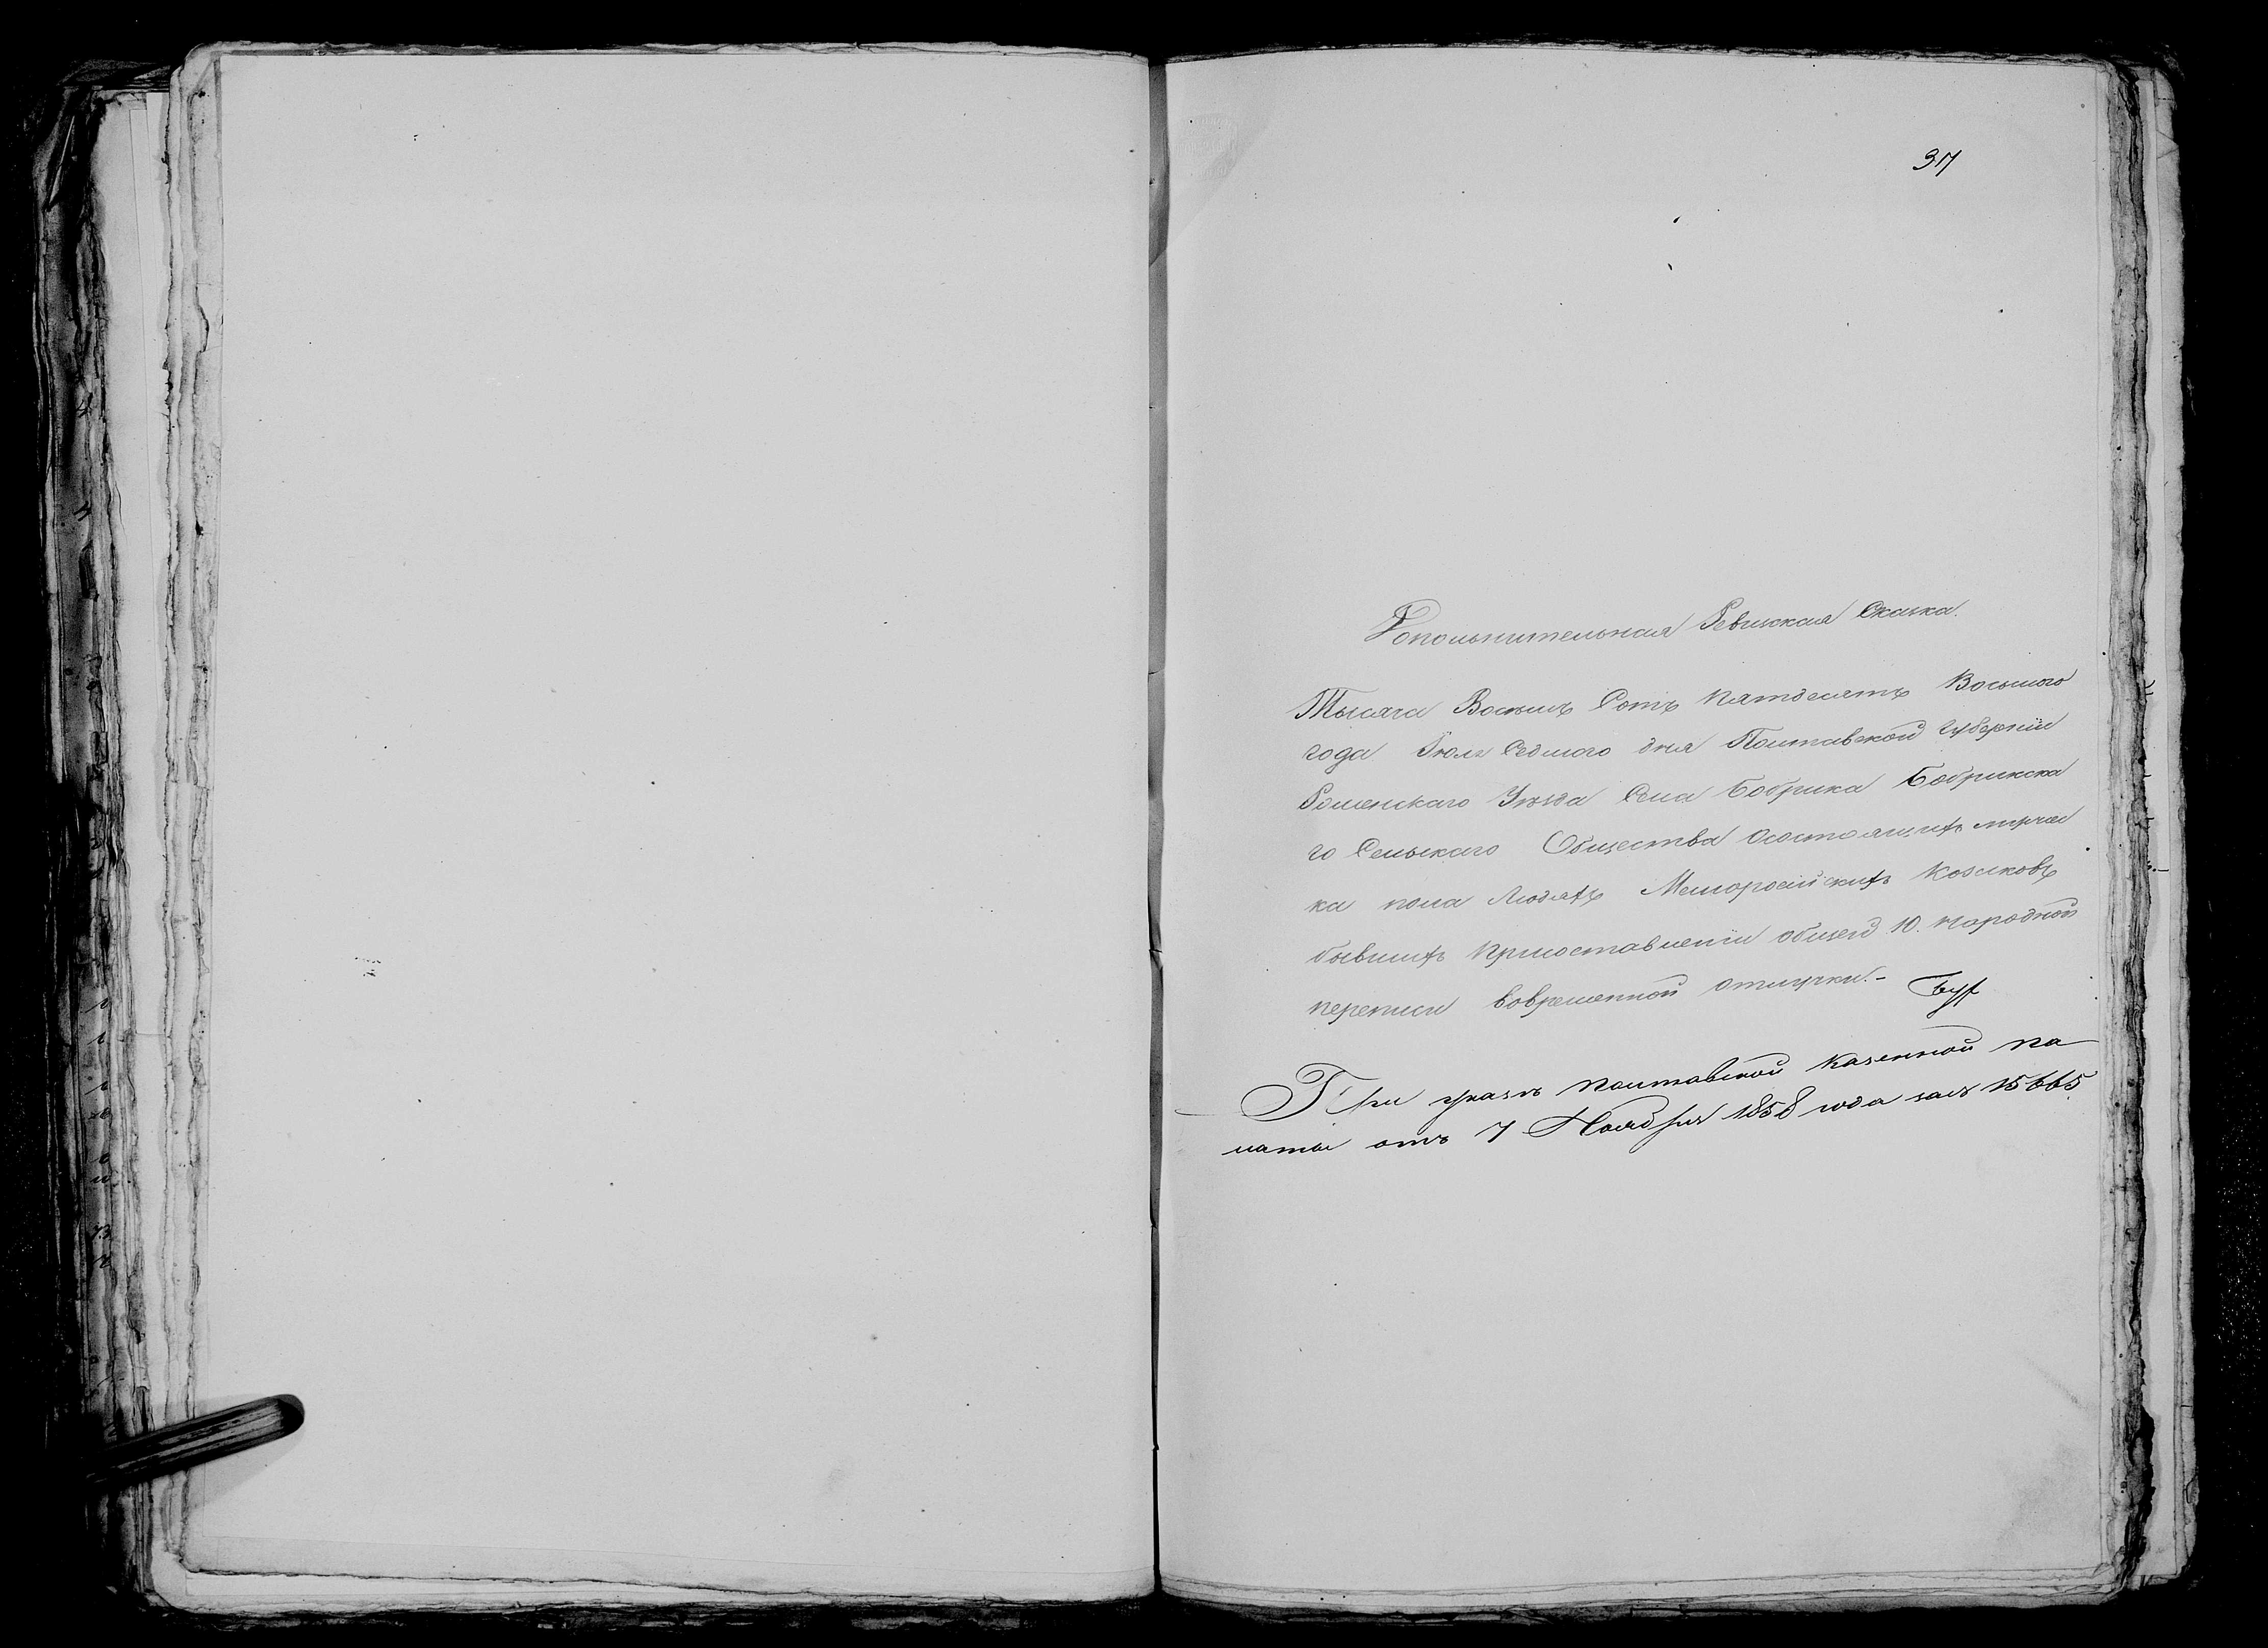 37
Дополнительная Ревизская Сказка.
Тысяча Восемь Сотъ пятдесятъ Восьмого
года Іюля Седмого дня Полтавской губерніи
Роменскаго Уѣзда Села Бобрика Бобрикска
го Сельскаго Общества Осостоящихъ мужес
ка пола людяхъ Малоросійскихъ козаковъ
бывшихъ приоставленіи общей 10. народной
переписи вовременной отлучки.-
При указѣ полтавской казенной па
латы отъ 7 Ноября 1858 года за№ 15665